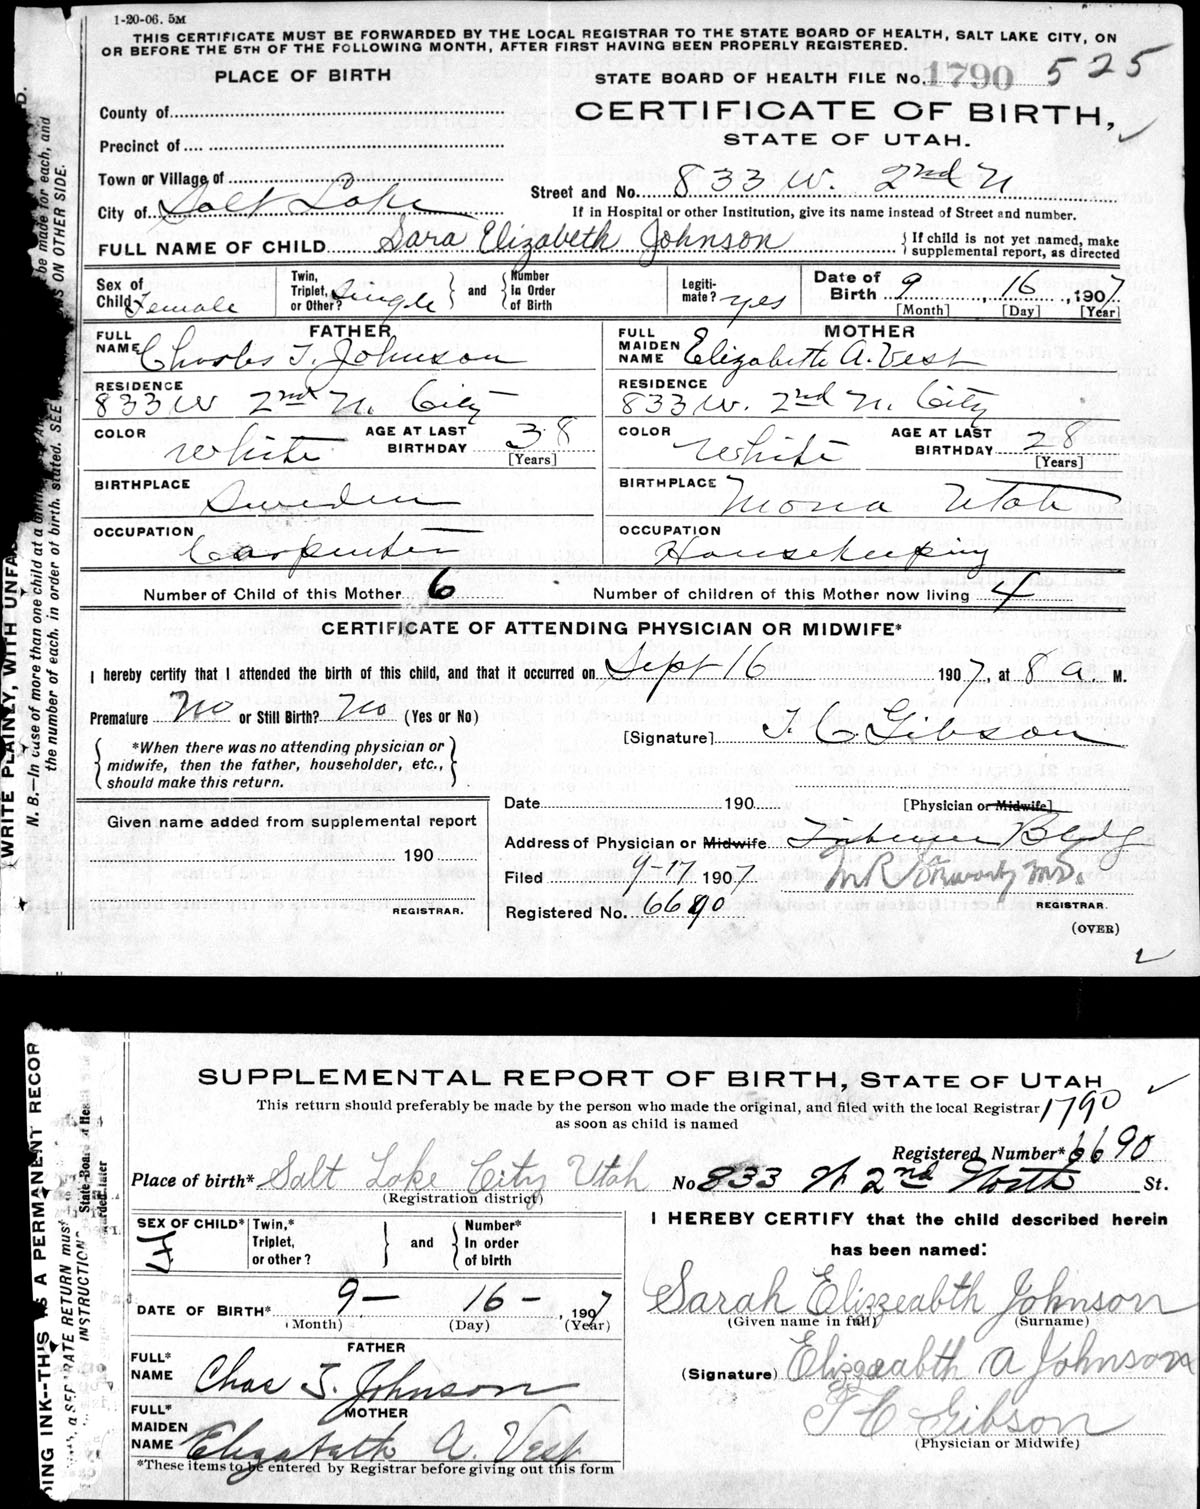 1-20-06. 5M
THIS CERTIFICATE MUST BE FORWARDED BY THE LOCAL REGISTRAR TO THE STATE BOARD OF HEALTH, SALT LAKE CITY, ON
OR BEFORE THE 5TH OF THE FOLLOWING MONTH, AFTER FIRST HAVING BEEN PROPERLY REGISTERED.
PLACE OF BIRTH
STATE BOARD OF HEALTH FILE No. 1790 525
County of
CERTIFICATE OF BIRTH,
STATE OF UTAH.
Precinct of
Town or Village of
Street and No. 833 W. 2nd N
City of Salt Lake
If in Hospital or other Institution, give its name instead of Street and number.
FULL NAME OF CHILD Sara Elizabeth Johnson
If child is not yet named, make
supplemental report, as directed
Sex of Child Female
Twin, Triplet, or Other? Single
and
Number In Order of Birth
Legiti-mate? yes
Date of Birth 9, 16, 1907
[Month] [Day] [Year]
FATHER
FULL NAME Charles T. Johnson
MOTHER
FULL MAIDEN NAME Elizabeth A. Vest
RESIDENCE 833 W 2nd N. City
RESIDENCE 833 W. 2nd N. City
COLOR White
AGE AT LAST BIRTHDAY 38 [Years]
COLOR White
AGE AT LAST BIRTHDAY 28 [Years]
BIRTHPLACE Sweden
BIRTHPLACE Mona Utah
OCCUPATION Carpenter
OCCUPATION Housekeeping
Number of Child of this Mother 6
Number of children of this Mother now living 4
CERTIFICATE OF ATTENDING PHYSICIAN OR MIDWIFE*
I hereby certify that I attended the birth of this child, and that it occurred on Sept 16 1907, at 8 a. M.
Premature No or Still Birth? No (Yes or No)
[Signature] T. C Gibson
*When there was no attending physician or
midwife, then the father, householder, etc.,
should make this return.
Date 190
[Physician or Midwife]
Given name added from supplemental report
190
REGISTRAR.
Address of Physician or Midwife Bldg
Filed 9-17 1907
M.D.
REGISTRAR.
Registered No. 6690
(OVER)
WRITE PLAINLY, WITH UNFA
N. B.—In case of more than one child at a birth
be made for each, and
the number of each, in order of birth, stated. SEE
NS ON OTHER SIDE.
SUPPLEMENTAL REPORT OF BIRTH, STATE OF UTAH
This return should preferably be made by the person who made the original, and filed with the local Registrar 1790
as soon as child is named
Registered Number* 6690
Place of birth* Salt Lake City Utah No 833 W 2nd North St.
(Registration district)
SEX OF CHILD* F
Twin,* Triplet, or other?
and
Number* In order of birth
I HEREBY CERTIFY that the child described herein
has been named:
DATE OF BIRTH* 9— 16—, 1907
(Month) (Day) (Year)
Sarah Elizzeabth Johnson
(Given name in full) (Surname)
FATHER
FULL* NAME Chas T. Johnson
(Signature) Elizzeabth A Johnson
MOTHER
FULL* MAIDEN NAME Elizabeth A. Vest
T C Gibson
(Physician or Midwife)
*These items to be entered by Registrar before giving out this form
ING INK--THIS IS A PERMANENT RECOR
RATE RETURN must
INSTRUCTION
State Board of Hea